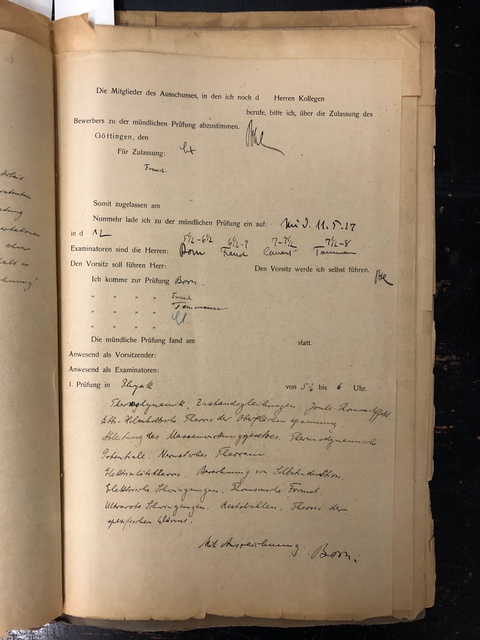 Die Mitglieder des Ausschusses, in den ich noch d Herren Kollegen
berufe, bitte ich, über die Zulassung des
Bewerbers zu der mündlichen Prüfung abzustimmen.
Göttingen, den
Für Zulassung:
Franck
Somit zugelassen am
Nunmehr lade ich zu der mündlichen Prüfung ein auf: 11.5.27
in d
5½-6½ 6½-7 7-7½ 7½-8
Examinatoren sind die Herren: Born Franck Courant Tammann
Den Vorsitz soll führen Herr: Den Vorsitz werde ich selbst führen.
Ich komme zur Prüfung Born.
" " " " Franck
" " " " Tammann
" " " "
Die mündliche Prüfung fand am statt.
Anwesend als Vorsitzender:
Anwesend als Examinatoren:
I. Prüfung in Physik von 5½ bis 6 Uhr.
Thermodynamik. Zustandsgleichungen. Joule-Thomsoneffekt
Helmholtzsche Theorie der Oberflächenspannung.
Ableitung des Massenwirkungsgesetzes. Thermodynamische
Potentiale. Nernstsches Theorem.
Elektrizitätstheorie. Berechnung von Selbstinduktion.
Elektrische Schwingungen. Thomsonsche Formel.
Ultrarote Schwingungen. Reststrahlen. Theorie der
spezifischen Wärme.
Mit Auszeichnung. Born.